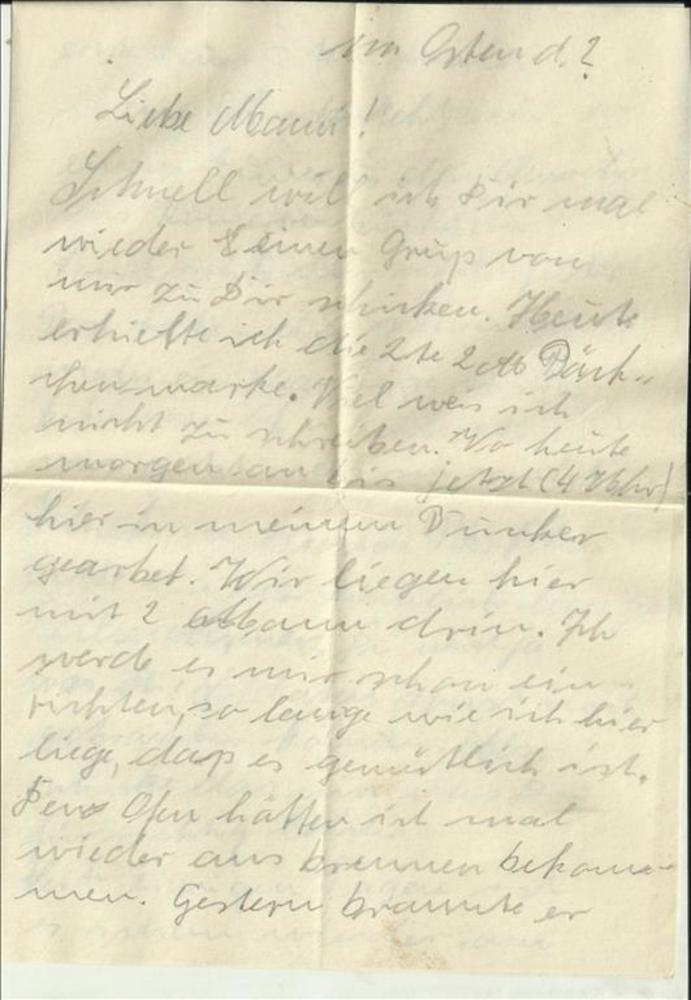 im Osten d. 2
Liebe Mami!
Schnell will ich Dir mal
wieder einen Gruß von
mir zu Dir schicken. Heute
erhielte ich die 2te 2 Päck-
chenmarke. Viel weis ich
nicht zu schreiben. Vo heute
morgen an bis jetzt (4 Uhr)
hier in meinem Bunker
gearbet. Wir liegen hier
mit 2 Mann drin. Ich
werde es mir schon ein-
richten, so lange wie ich hier
liege, daß es gemütlich ist.
Den Ofen hätten ich mal
wieder ans brennen bekom-
men. Gestern brannte er